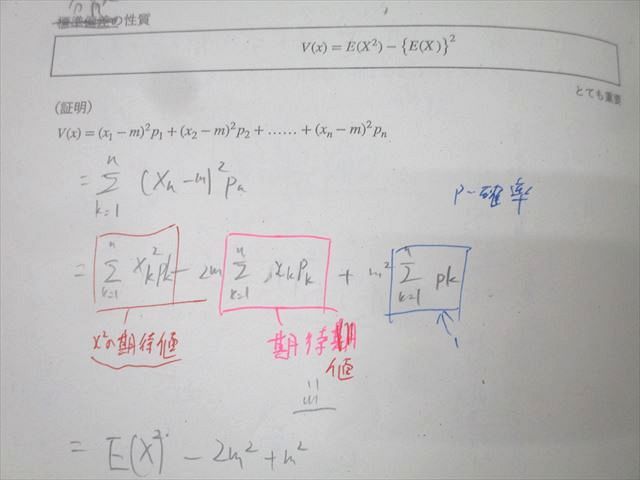 の性質
V(x) = E(X²) − {E(X)}²
とても重要
(証明)
V(x) = (x₁ − m)²p₁ + (x₂ − m)²p₂ + …… + (xₙ − m)²pₙ
= Σ_{k=1}^{n} (xₖ − m)² pₖ
P − 確率
= Σ_{k=1}^{n} xₖ²pₖ − 2m Σ_{k=1}^{n} xₖpₖ + m² Σ_{k=1}^{n} pk
x²の期待値
期待
値
1
= m
= E(X²) − 2m² + m²